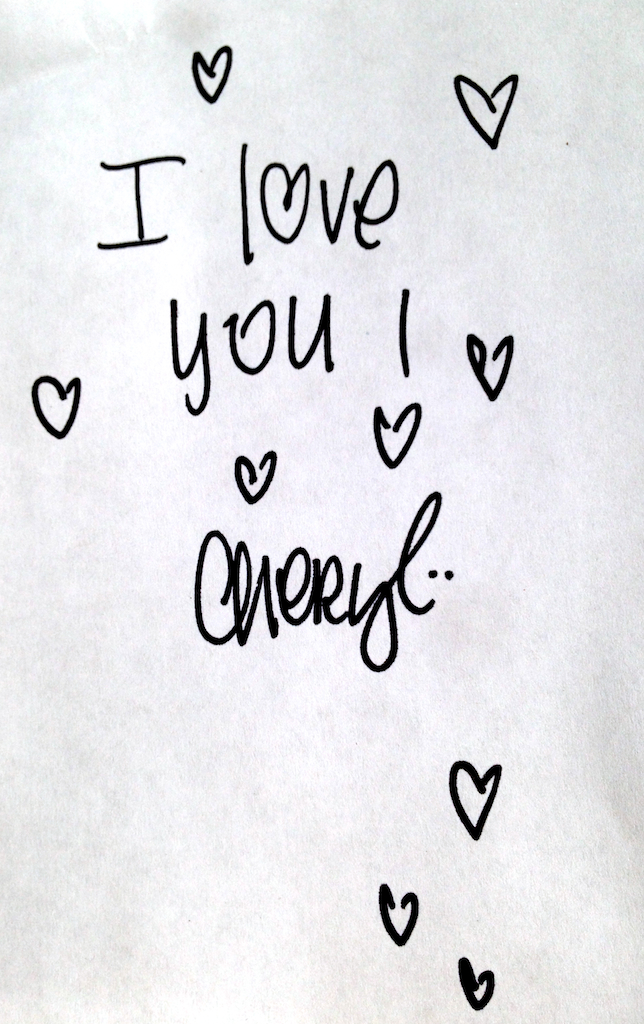 I love
you !
Cheryl..